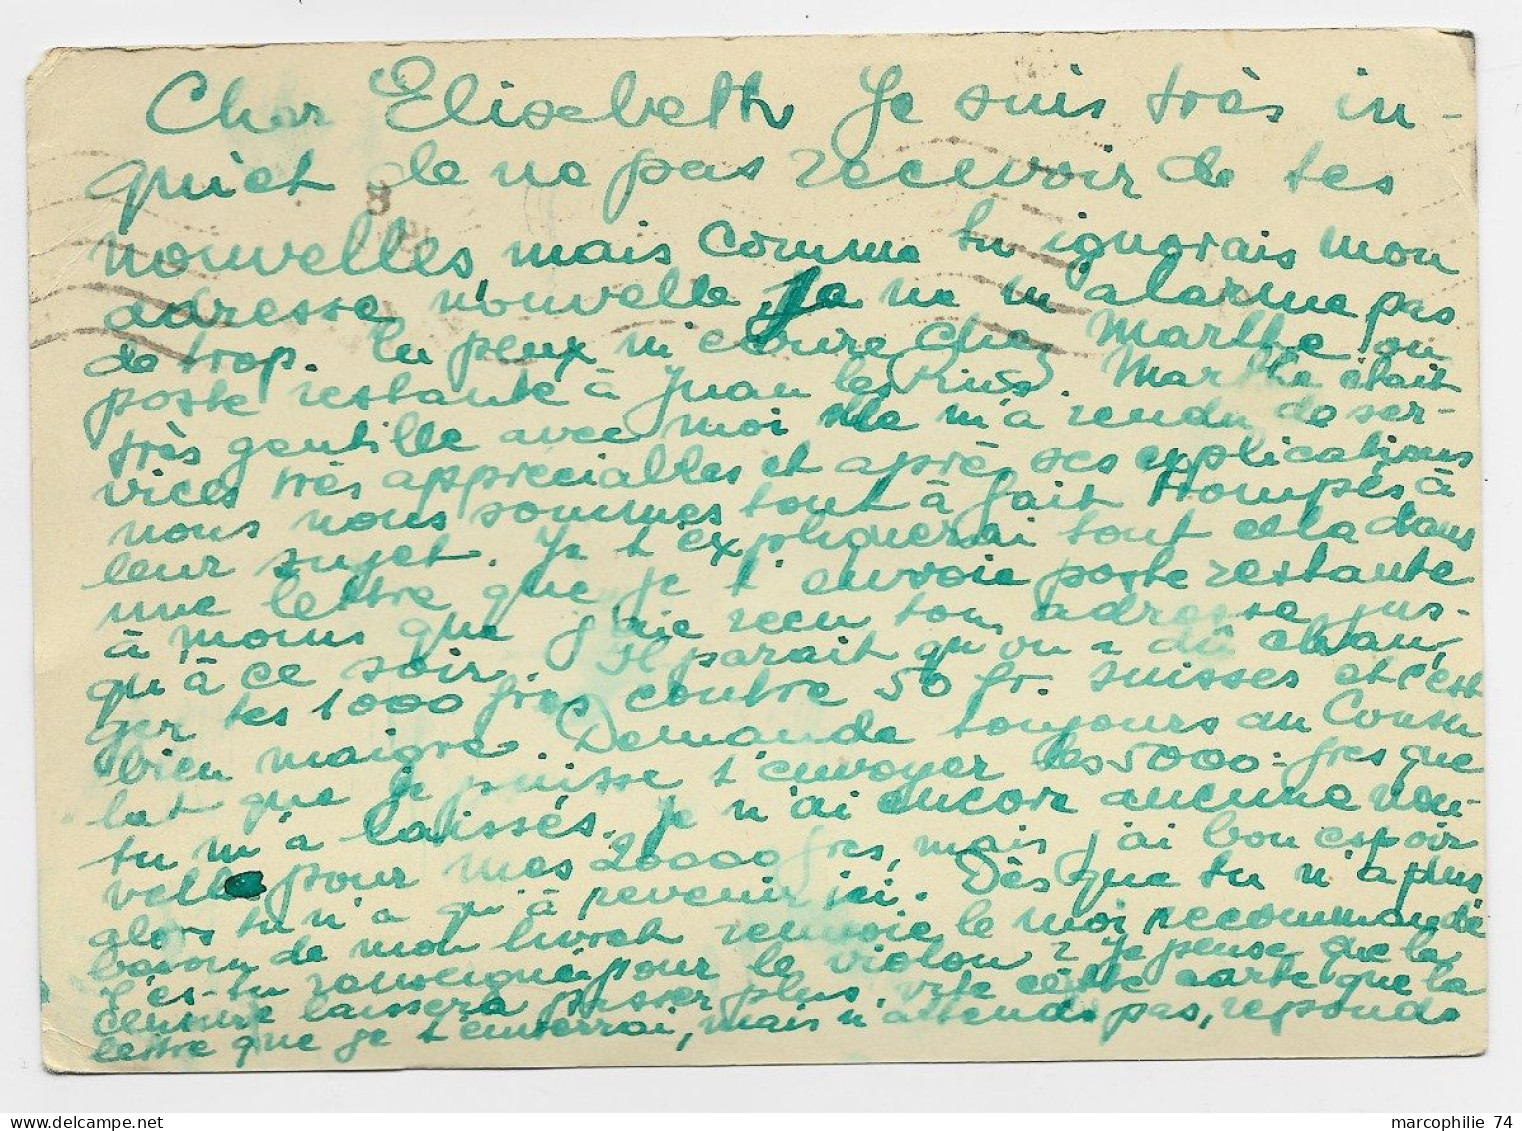 Cher Elisabeth Je suis très in-
quiet de ne pas recevoir de tes
nouvelles, mais comme tu ignorais mon
adresse nouvelle je ne m'alarme pas
de trop. Tu peux m'écrire chez Marthe ou
poste restante à Juan les Pins. Marthe était
très gentille avec moi elle m'a rendu de ser-
vices très appreciables et après ses explications
nous nous sommes tout à fait trompés à
leur sujet. Je t'expliquerai tout cela dans
une lettre que je t'envoie poste restante
à moins que j'aie recu ton adresse jus-
qu'à ce soir. Il parait qu'on a dû chan-
ger tes 1000 frcs contre 50 fr. suisses et c'est
bien maigre. Demande toujours au Consu
lat que je puisse t'envoyer les 5000.- frcs que
tu m'a laissés. Je n'ai encore aucune nou-
velle pour mes 20000 frcs, mais j'ai bon espoir
alors tu n'a qu'à revenir ici. Dès que tu n'a plus
besoin de mon livret renvoie le moi recommandé
T'es-tu renseigné pour le violon? Je pense que la
censure laissera passer plus vite cette carte que la
lettre que je t'enverrai, mais n'attends pas, reponds
8
marcophilie 74